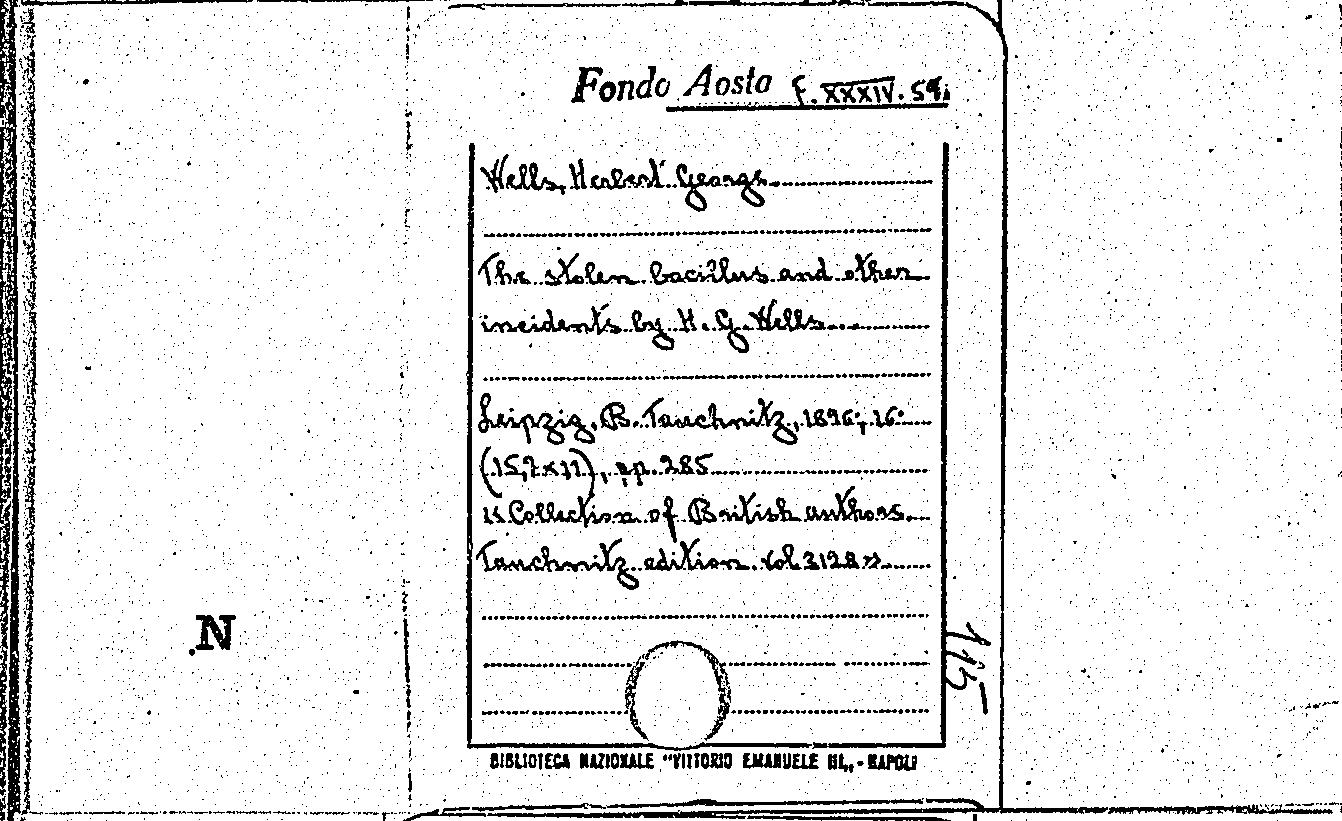 Fondo Aosta F. XXXIV. 59.
Wells, Herbert George
The stolen bacillus and other
incidents by H. G. Wells
Leipzig, B. Tauchnitz, 1896; 16°
(15,7x11), pp. 285
«Collection of British authors.
Tauchnitz edition. vol 3128»
N
115
BIBLIOTECA NAZIONALE "VITTORIO EMANUELE III„ - NAPOLI